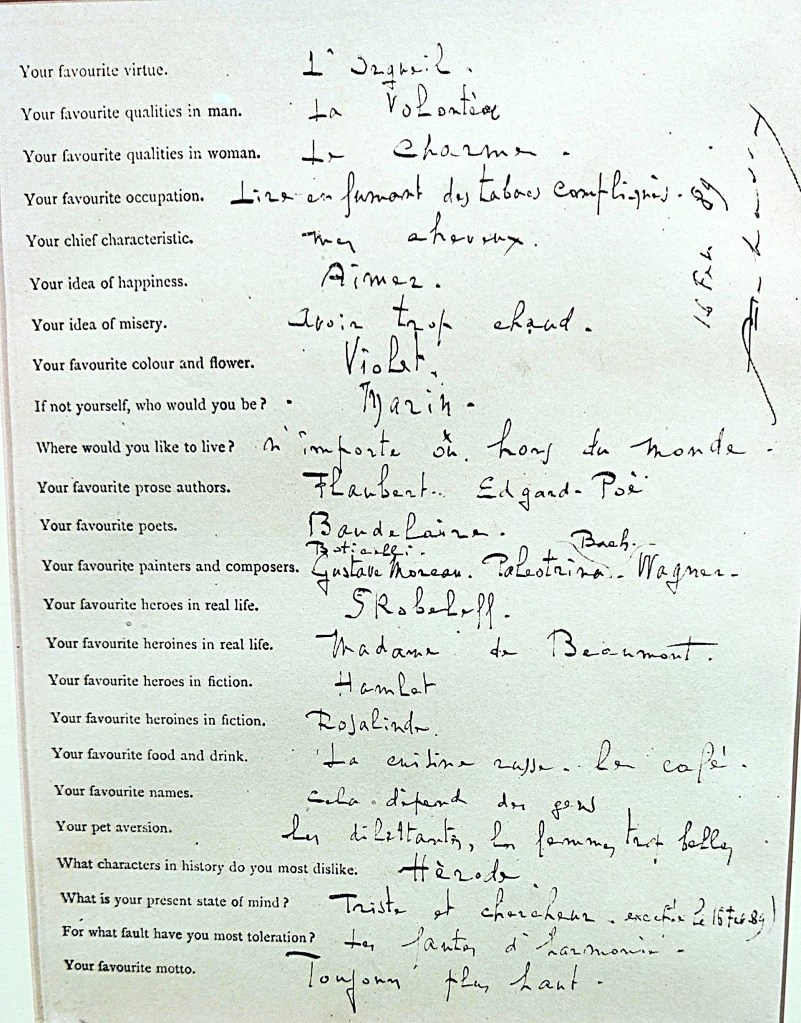 Your favourite virtue. L'orgueil.
Your favourite qualities in man. La Volonté
Your favourite qualities in woman. Le charme.
Your favourite occupation. Lire en fumant des tabacs compliqués.
Your chief characteristic. mes cheveux.
Your idea of happiness. Aimer.
Your idea of misery. Avoir trop chaud.
Your favourite colour and flower. Violet.
If not yourself, who would you be? Marin.
Where would you like to live? n'importe où hors du monde.
Your favourite prose authors. Flaubert.. Edgard-Poë
Your favourite poets. Baudelaire.
Boticelli. Bach.
Your favourite painters and composers. Gustave Moreau. Palestrina.. Wagner.
Your favourite heroes in real life. Skobeleff.
Your favourite heroines in real life. Madame de Beaumont.
Your favourite heroes in fiction. Hamlet
Your favourite heroines in fiction. Rosalinde.
Your favourite food and drink. La cuisine russe. Le café.
Your favourite names. cela dépend des gens
Your pet aversion. les dilettantes, les femmes trop belles
What characters in history do you most dislike. Hérode.
What is your present state of mind? Triste et chercheur. excepté le 16 Fév 89)
For what fault have you most toleration? Les fautes d'harmonie.
Your favourite motto. Toujours plus haut.
16 Fev 89